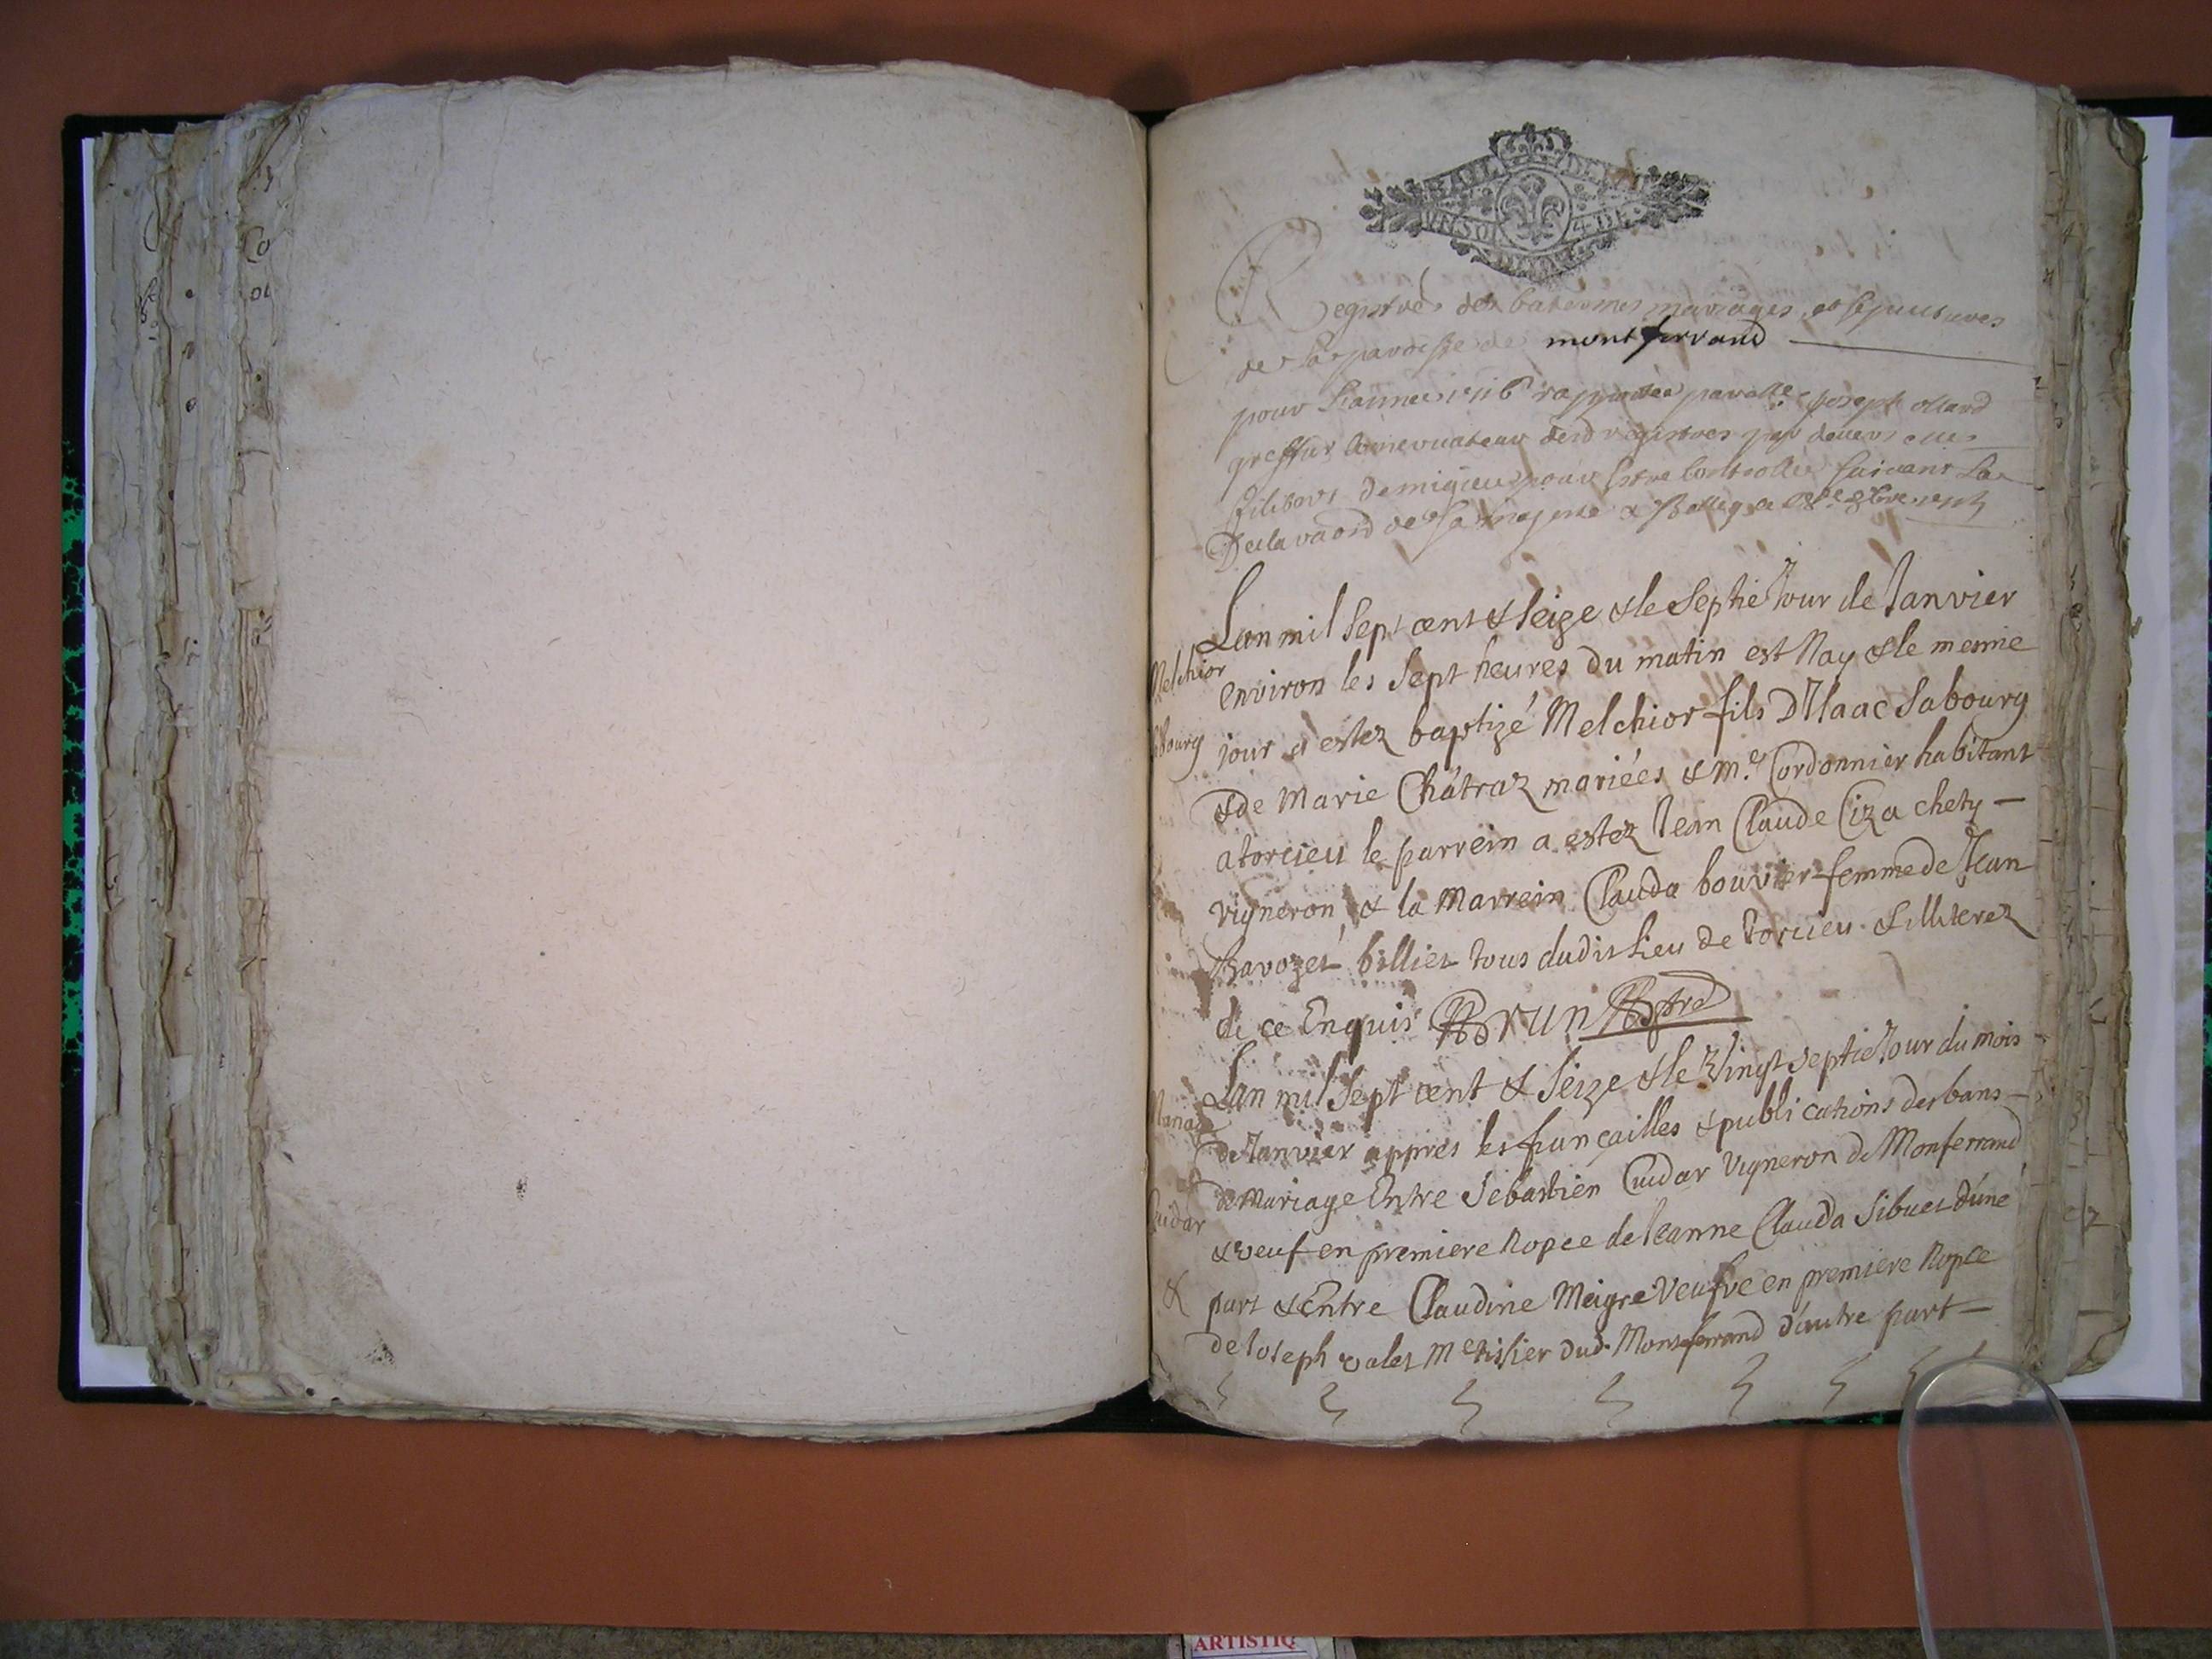 Registre des batesmes mariages et sepultures
de la paroisse de montferrand
pour Lannee 1716 Joseph
greffier registres par devers
pour Estre Controllée suivant La
de sa majesté a
Lan mil sept cent & seize & le septie Jour de Janvier
Melchior
environ les sept heures du matin est Nay & le mesme
jour a estez baptizé Melchior fils D'Isaac Sabourg
& de Marie Châtraz mariées & m.e Cordonnier habitant
a torcieu le parrein a estez Jean Claude Ciza chety
vigneron & la Marrein Clauda bouvier femme de Jean
Ravozet billiet tous dudit Lieu de Torcieu & illiterez
de ce Enquis Brun Pstre
Lan mil sept cent & seize & le Vingt septie Jour du mois
Mariage
de Janvier appres les fiançailles & publications des bans
de Mariage Entre Sebastien Cuidar Vigneron de Monferrand
Cuidar
& veuf en premiere Nopce de Jeanne Clauda Sibuet d'une
&
part & Entre Claudine Meigre Veufve en premiere Nopce
de Joseph valet Me tissier dud. Montferrand d'autre part
ARTISTIQ